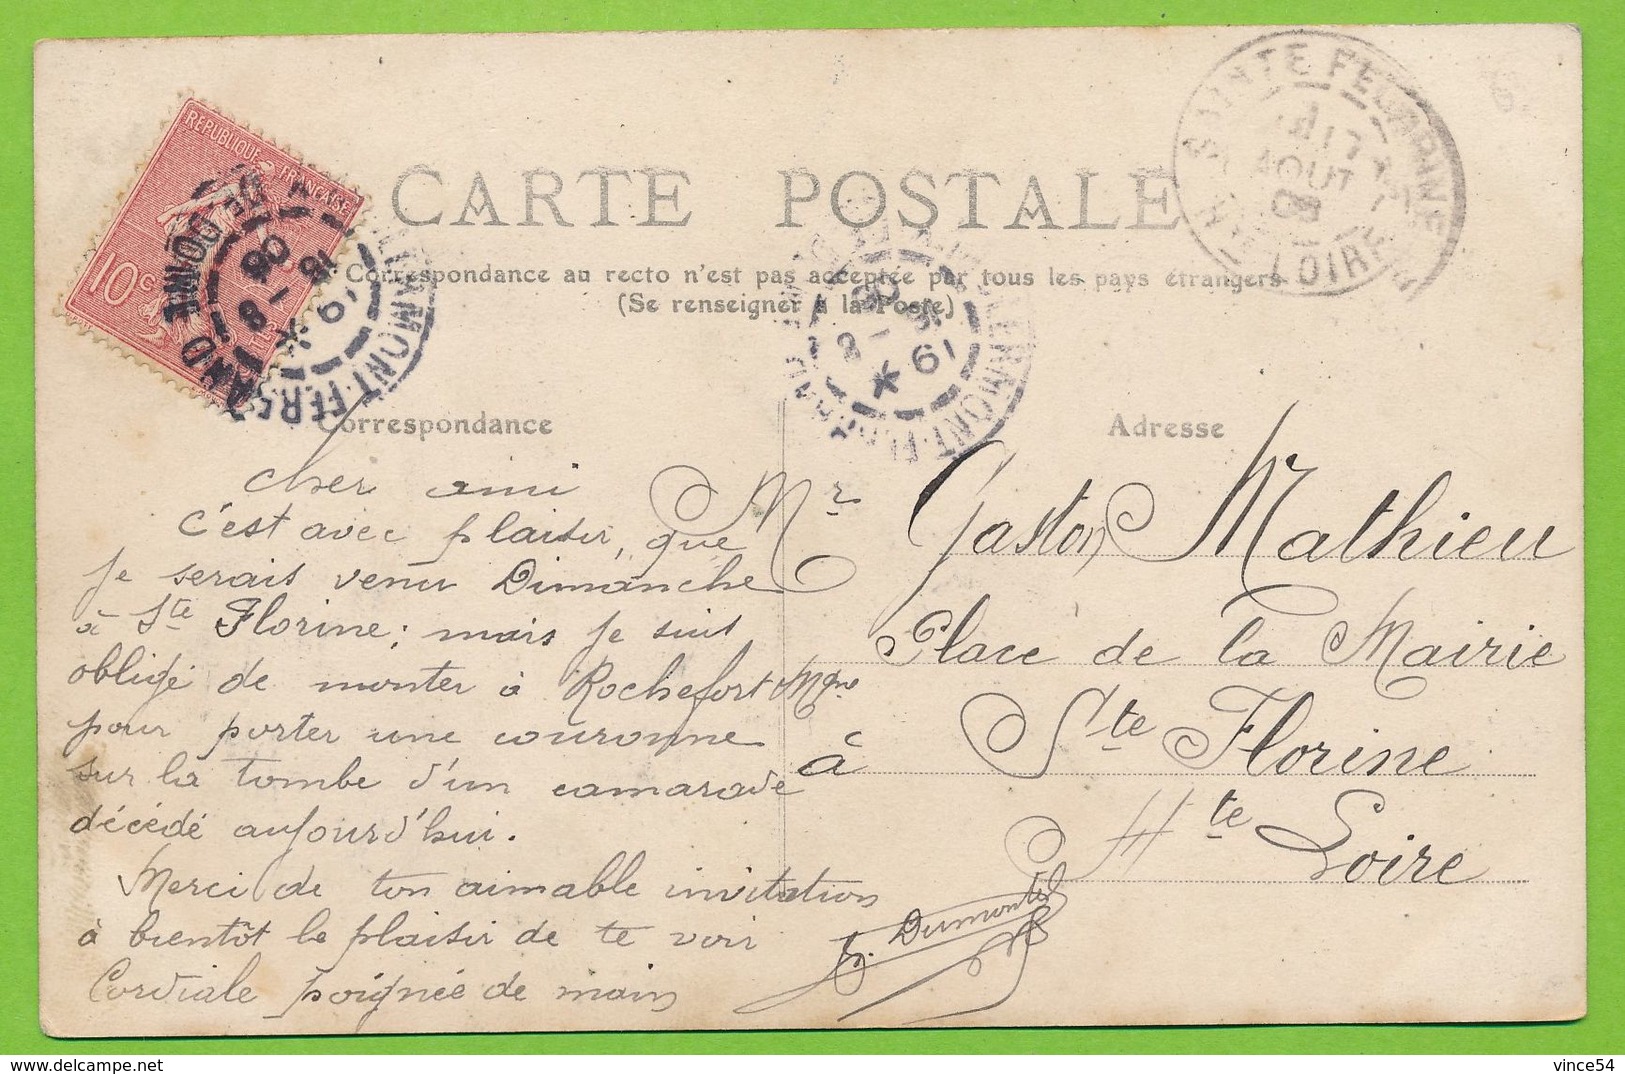 REPUBLIQUE FRANÇAISE
10c
CLERMONT-FERRAND
PUY-DE-DOME
16-8
06
SAINTE FLORINE
AOUT
HTE LOIRE
CARTE POSTALE
Correspondance au recto n'est pas acceptée par tous les pays étrangers
(Se renseigner à la Poste)
CLERMONT-FERRAND
Correspondance
Adresse
Cher ami
c'est avec plaisir, que
je serais venu Dimanche
à Ste Florine; mais je suis
obligé de monter à Rochefort Mgne
pour porter une couronne
sur la tombe d'un camarade
décédé aujourd'hui.
Merci de ton aimable invitation
à bientôt le plaisir de te voir
Cordiale poignée de main
Dumontel
Mr Gaston Mathieu
Place de la Mairie
à Ste Florine
Hte Loire
vince54